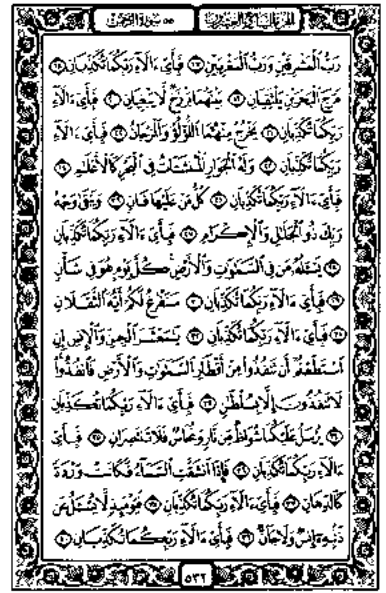 الجزء السابع والعشرون ٥٥ سورة الرحمن
رَبُّ ٱلْمَشْرِقَيْنِ وَرَبُّ ٱلْمَغْرِبَيْنِ ١٧ فَبِأَيِّ ءَالَآءِ رَبِّكُمَا تُكَذِّبَانِ ١٨
مَرَجَ ٱلْبَحْرَيْنِ يَلْتَقِيَانِ ١٩ بَيْنَهُمَا بَرْزَخٌ لَّا يَبْغِيَانِ ٢٠ فَبِأَيِّ ءَالَآءِ
رَبِّكُمَا تُكَذِّبَانِ ٢١ يَخْرُجُ مِنْهُمَا ٱللُّؤْلُؤُ وَٱلْمَرْجَانُ ٢٢ فَبِأَيِّ ءَالَآءِ
رَبِّكُمَا تُكَذِّبَانِ ٢٣ وَلَهُ ٱلْجَوَارِ ٱلْمُنشَـَٔاتُ فِي ٱلْبَحْرِ كَٱلْأَعْلَٰمِ ٢٤
فَبِأَيِّ ءَالَآءِ رَبِّكُمَا تُكَذِّبَانِ ٢٥ كُلُّ مَنْ عَلَيْهَا فَانٍ ٢٦ وَيَبْقَىٰ وَجْهُ
رَبِّكَ ذُو ٱلْجَلَٰلِ وَٱلْإِكْرَامِ ٢٧ فَبِأَيِّ ءَالَآءِ رَبِّكُمَا تُكَذِّبَانِ
٢٨ يَسْـَٔلُهُۥ مَن فِي ٱلسَّمَٰوَٰتِ وَٱلْأَرْضِ كُلَّ يَوْمٍ هُوَ فِي شَأْنٍ
٢٩ فَبِأَيِّ ءَالَآءِ رَبِّكُمَا تُكَذِّبَانِ ٣٠ سَنَفْرُغُ لَكُمْ أَيُّهَ ٱلثَّقَلَانِ
٣١ فَبِأَيِّ ءَالَآءِ رَبِّكُمَا تُكَذِّبَانِ ٣٢ يَٰمَعْشَرَ ٱلْجِنِّ وَٱلْإِنسِ إِنِ
ٱسْتَطَعْتُمْ أَن تَنفُذُوا۟ مِنْ أَقْطَارِ ٱلسَّمَٰوَٰتِ وَٱلْأَرْضِ فَٱنفُذُوا۟
لَا تَنفُذُونَ إِلَّا بِسُلْطَٰنٍ ٣٣ فَبِأَيِّ ءَالَآءِ رَبِّكُمَا تُكَذِّبَانِ
٣٤ يُرْسَلُ عَلَيْكُمَا شُوَاظٌ مِّن نَّارٍ وَنُحَاسٌ فَلَا تَنتَصِرَانِ ٣٥ فَبِأَيِّ
ءَالَآءِ رَبِّكُمَا تُكَذِّبَانِ ٣٦ فَإِذَا ٱنشَقَّتِ ٱلسَّمَآءُ فَكَانَتْ وَرْدَةً
كَٱلدِّهَانِ ٣٧ فَبِأَيِّ ءَالَآءِ رَبِّكُمَا تُكَذِّبَانِ ٣٨ فَيَوْمَئِذٍ لَّا يُسْـَٔلُ عَن
ذَنۢبِهِۦٓ إِنسٌ وَلَا جَآنٌّ ٣٩ فَبِأَيِّ ءَالَآءِ رَبِّكُمَا تُكَذِّبَانِ ٤٠
٥٣٢